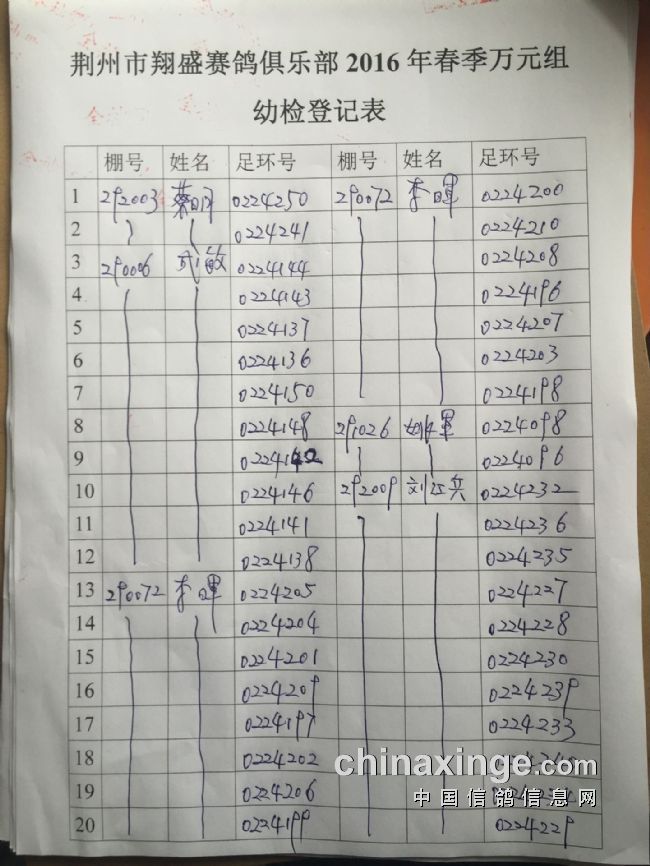 荆州市翔盛赛鸽俱乐部 2016 年春季万元组
幼检登记表
棚号 姓名 足环号 棚号 姓名 足环号
1 292003 蔡明 0224250 290072 李晖 0224200
2 0224241 0224210
3 290006 0224144 0224208
4 0224143 0224196
5 0224137 0224207
6 0224136 0224203
7 0224150 0224198
8 0224148 291026 0224098
9 0224142 0224096
10 0224146 292009 刘江兵 0224232
11 0224141 0224236
12 0224138 0224235
13 290072 李晖 0224205 0224227
14 0224204 0224228
15 0224201 0224230
16 0224209 0224239
17 0224197 0224233
18 0224202
19 0224206
20 0224199 0224229
chinaxinge.com
中国信鸽信息网